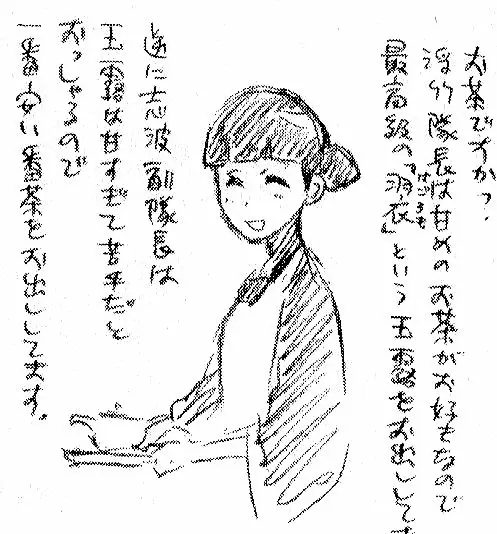 お茶ですか?
浮竹隊長は甘めのお茶がお好きなので
最高級の「羽衣」という玉露をお出しして
はごろも
逆に志波副隊長は
玉露は甘すぎて苦手だと
おっしゃるので
一番安い番茶をお出ししてます。